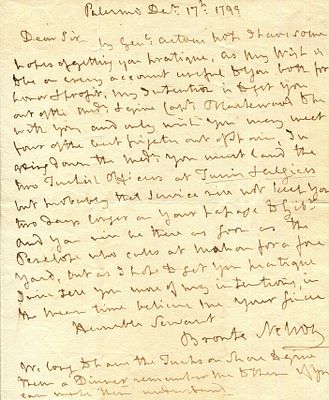 Palermo Decr. 17th. 1799
Dear Sir
by Genl. Actons note I have some
hopes of getting you pratique, as my wish is
to be on every account useful to you both for
honor & profit, my intention is to get you
out of the Medn. & give Capt. Blackwood
with you and only wish you may meet
four of the best frigates out of Spain, In
going down the Medn. you must land the
two Turkish Officers at Tunis & Algiers
but probably that service will not keep you
two days longer on your passage to Gibr.
and you will be there as soon as the
Penelope who calls at Mahon for a fore
yard, but as I hope to get you pratique
I will tell you more of my intentions, in
the mean time believe me your sincere
Humble Servant
Bronte Nelson
We long to have the Turks on Shore to give
them a Dinner remember me to them if you
can make them understand